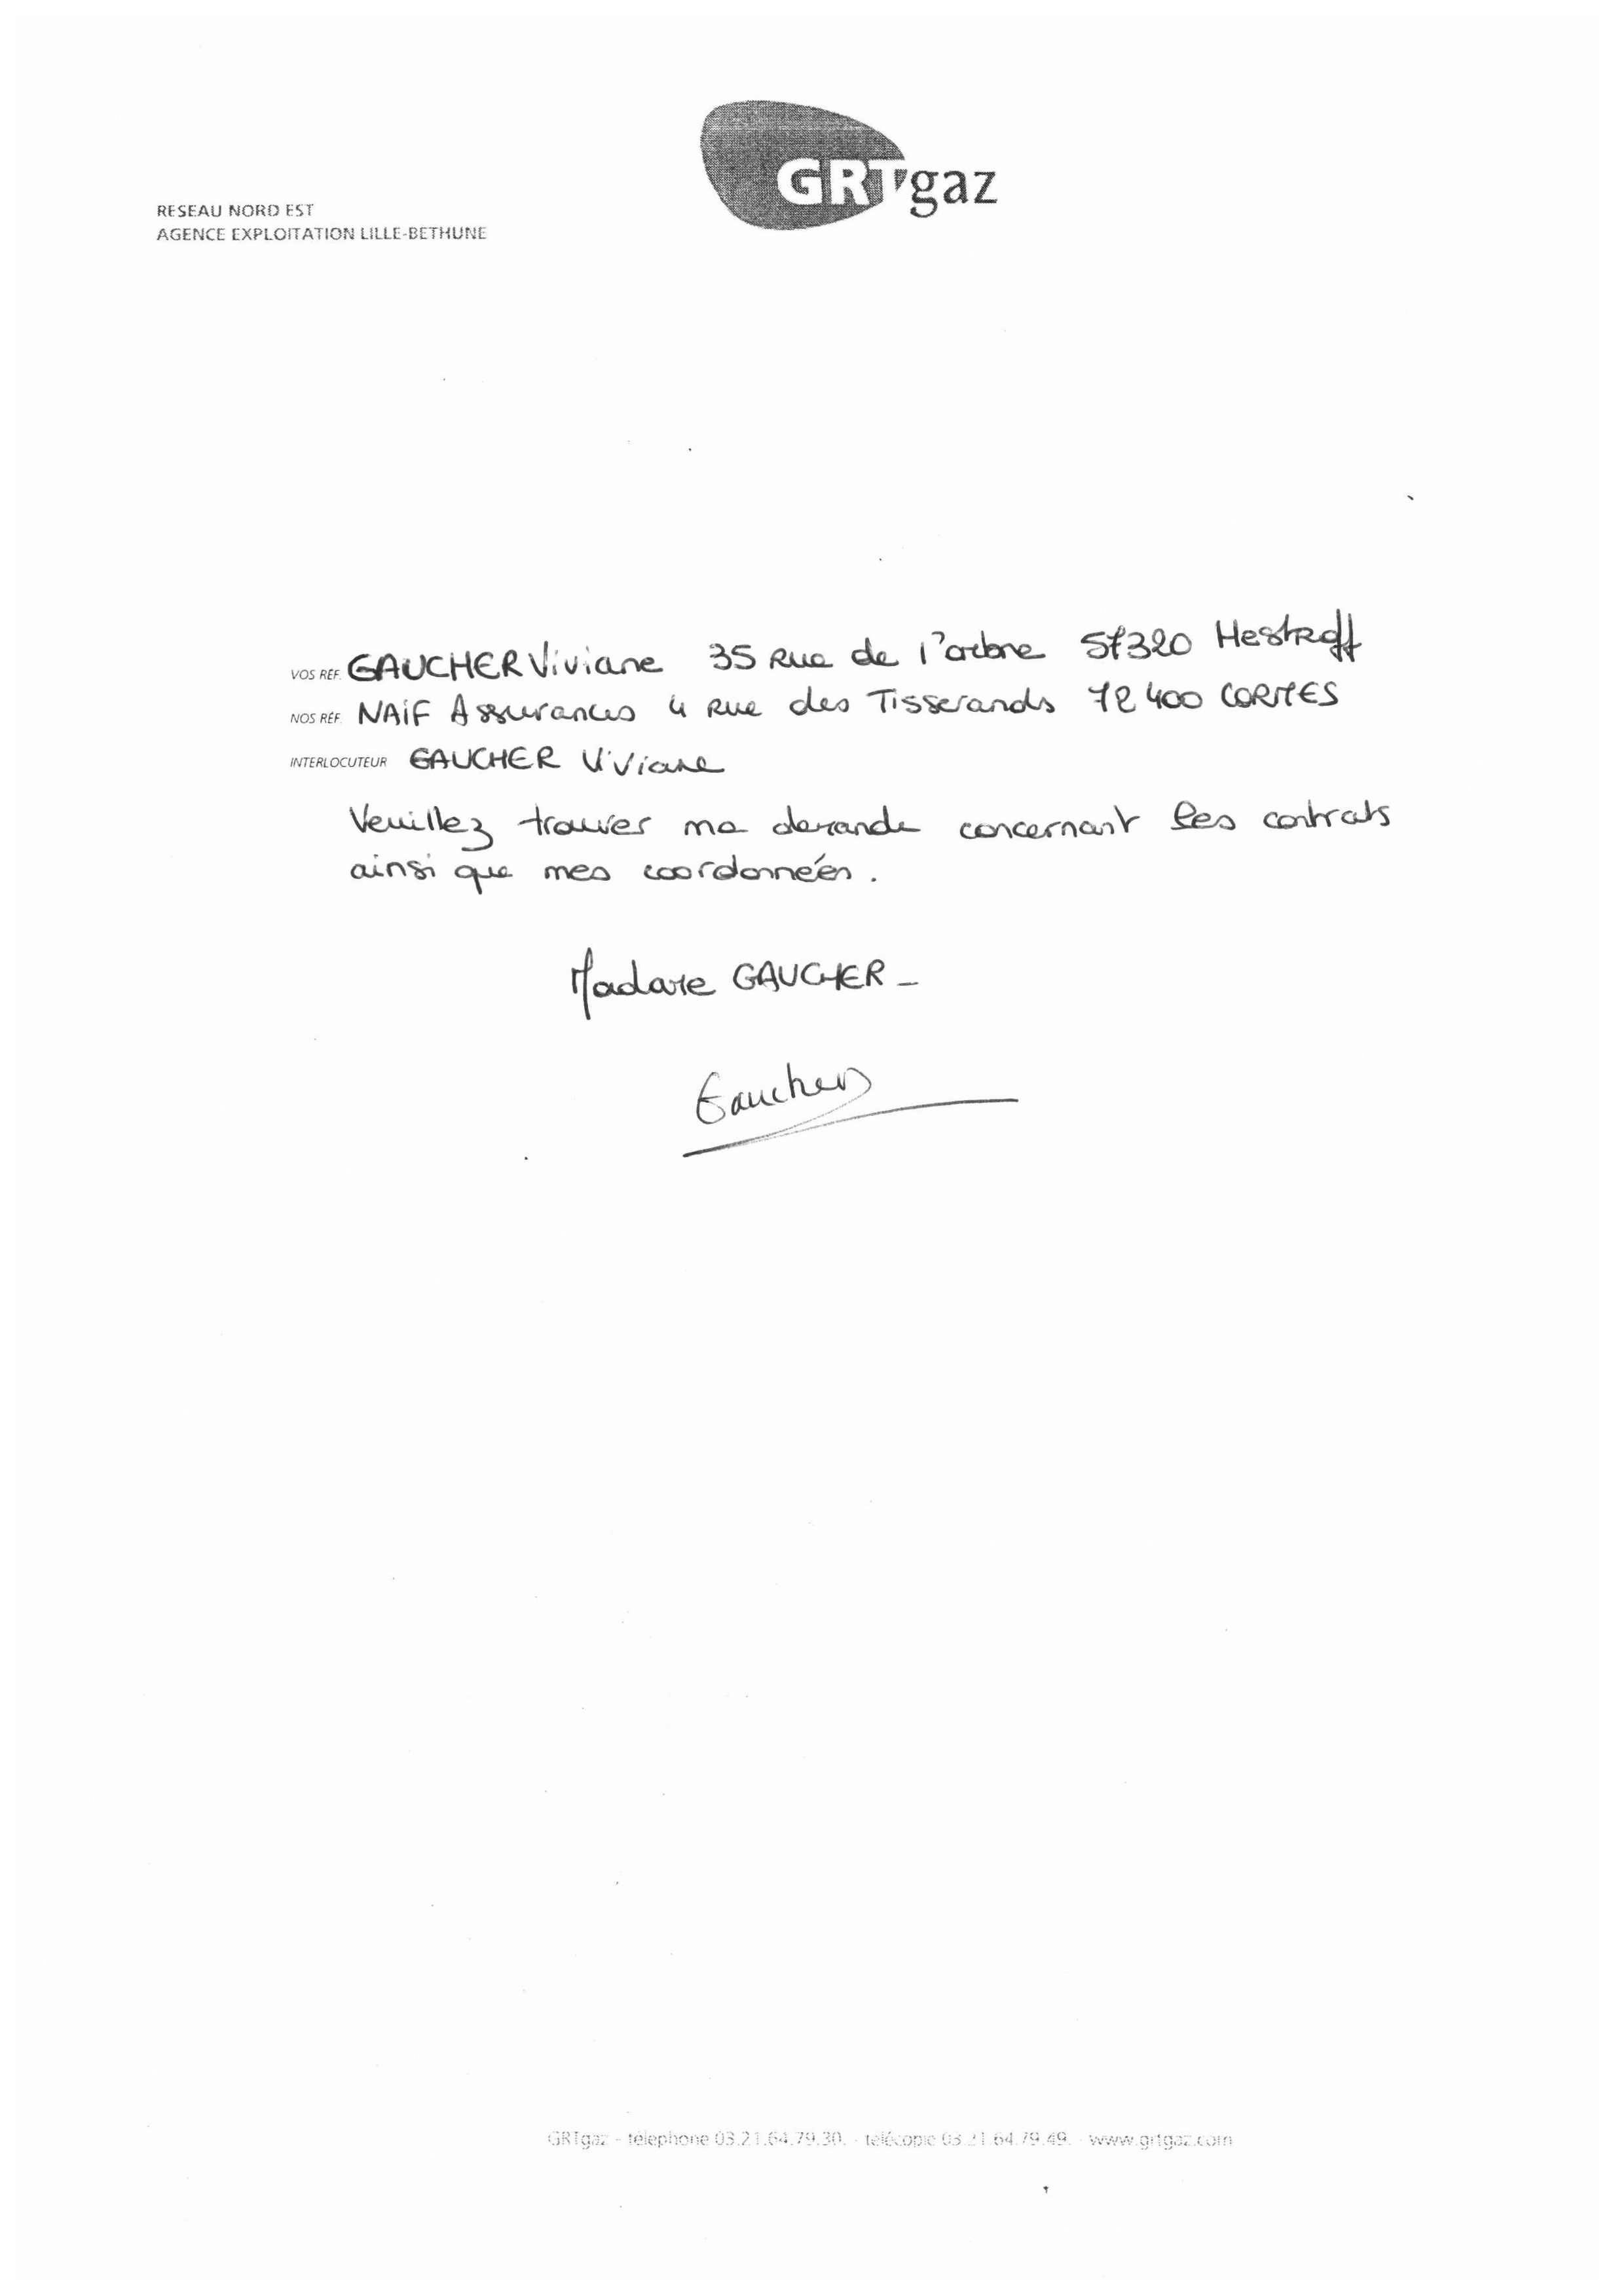 GRTgaz
RESEAU NORD EST
AGENCE EXPLOITATION LILLE-BETHUNE
VOS RÉF. GAUCHER Viviane 35 Rue de l'arbre 57320 Hestroff
NOS RÉF. NAIF Assurances 4 Rue des Tisserands 72400 CORMES
INTERLOCUTEUR GAUCHER Viviane
Veuillez trouver ma demande concernant les contrats
ainsi que mes coordonnées.
Madame GAUCHER -
Gaucher
GRTgaz - téléphone 03.21.64.79.30. - télécopie 03.21.64.79.49. - www.grtgaz.com